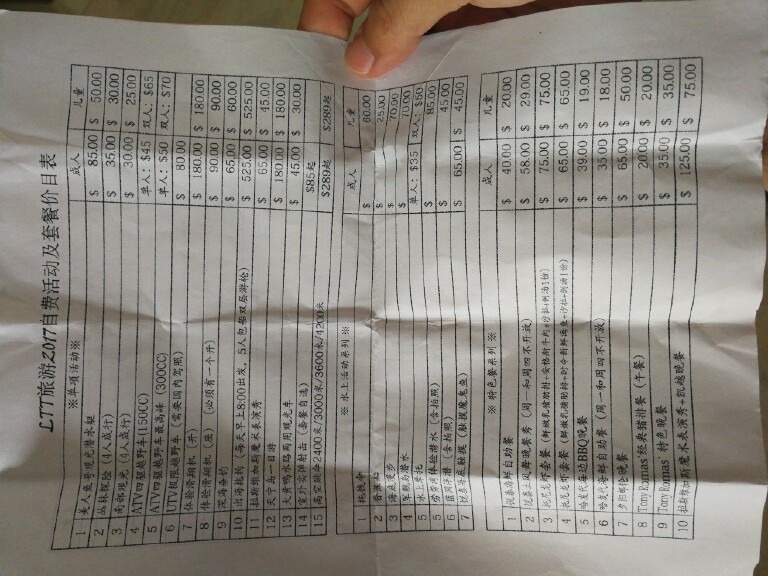 LTT旅游2017自费活动及套餐价目表
※单项活动※ 成人 儿童
1 美人鱼号观光潜水艇 $ 85.00 $ 50.00
2 丛林探险 (4人成行) $ 35.00 $ 30.00
3 南部观光 (4人成行) $ 30.00 $ 25.00
4 ATV四驱越野车(150CC) 单人: $45 双人: $65
5 ATV四驱越野车最高峰 (300CC) 单人: $50 双人: $70
6 UTV极限越野车 (需要国内驾照) $ 80.00
7 体验滑翔机 (开) $ 180.00 $ 180.00
8 体验滑翔机 (座) (必须有一个开) $ 90.00 $ 90.00
9 深海垂钓 $ 65.00 $ 60.00
10 出海拖钓 (每天早上8:00出发, 5人包船双层游轮) $ 525.00 $ 525.00
11 拉斯维加斯魔术表演秀 $ 65.00 $ 45.00
12 天宁岛一日游 $ 180.00 $ 180.00
13 大黄鸭水陆两用观光车 $ 45.00 $ 30.00
14 室外实弹射击 (套餐自选) $85起
15 高空跳伞2400米/3000米/3600米/1200米 $289起 $289起
※ 水上活动系列 ※ 成人 儿童
1 拖拽伞 $ 60.00
2 香蕉船 $ 25.00
3 海底漫步 $
4 军舰岛潜水
5 水上摩托 单人: $35 双人: $50
5 蓝洞体验潜水 (含拍照) $ 85.00
6 蓝洞浮潜 (含拍照) $ 45.00
7 (触摸魔鬼鱼) $ 65.00 $ 45.00
※ 特色餐系列 ※ 成人 儿童
1 海鲜自助餐 $ 40.00 $ 20.00
2 晚餐秀 (周一和周四不开放) $ 58.00 $ 29.00
3 $ 75.00 $ 75.00
4 $ 65.00 $ 65.00
5 海边BBQ晚餐 $ 39.00 $ 19.00
6 海鲜自助餐 (周一和周四不开放) $ 35.00 $ 18.00
7 夕阳邮轮晚餐 $ 65.00 $ 50.00
8 Tony Romas经典猪排餐 (午餐) $ 20.00 $ 20.00
9 Tony Romas 特色晚餐 $ 35.00 $ 35.00
10 拉斯维加斯魔术表演秀+凯越晚餐 $ 125.00 $ 75.00